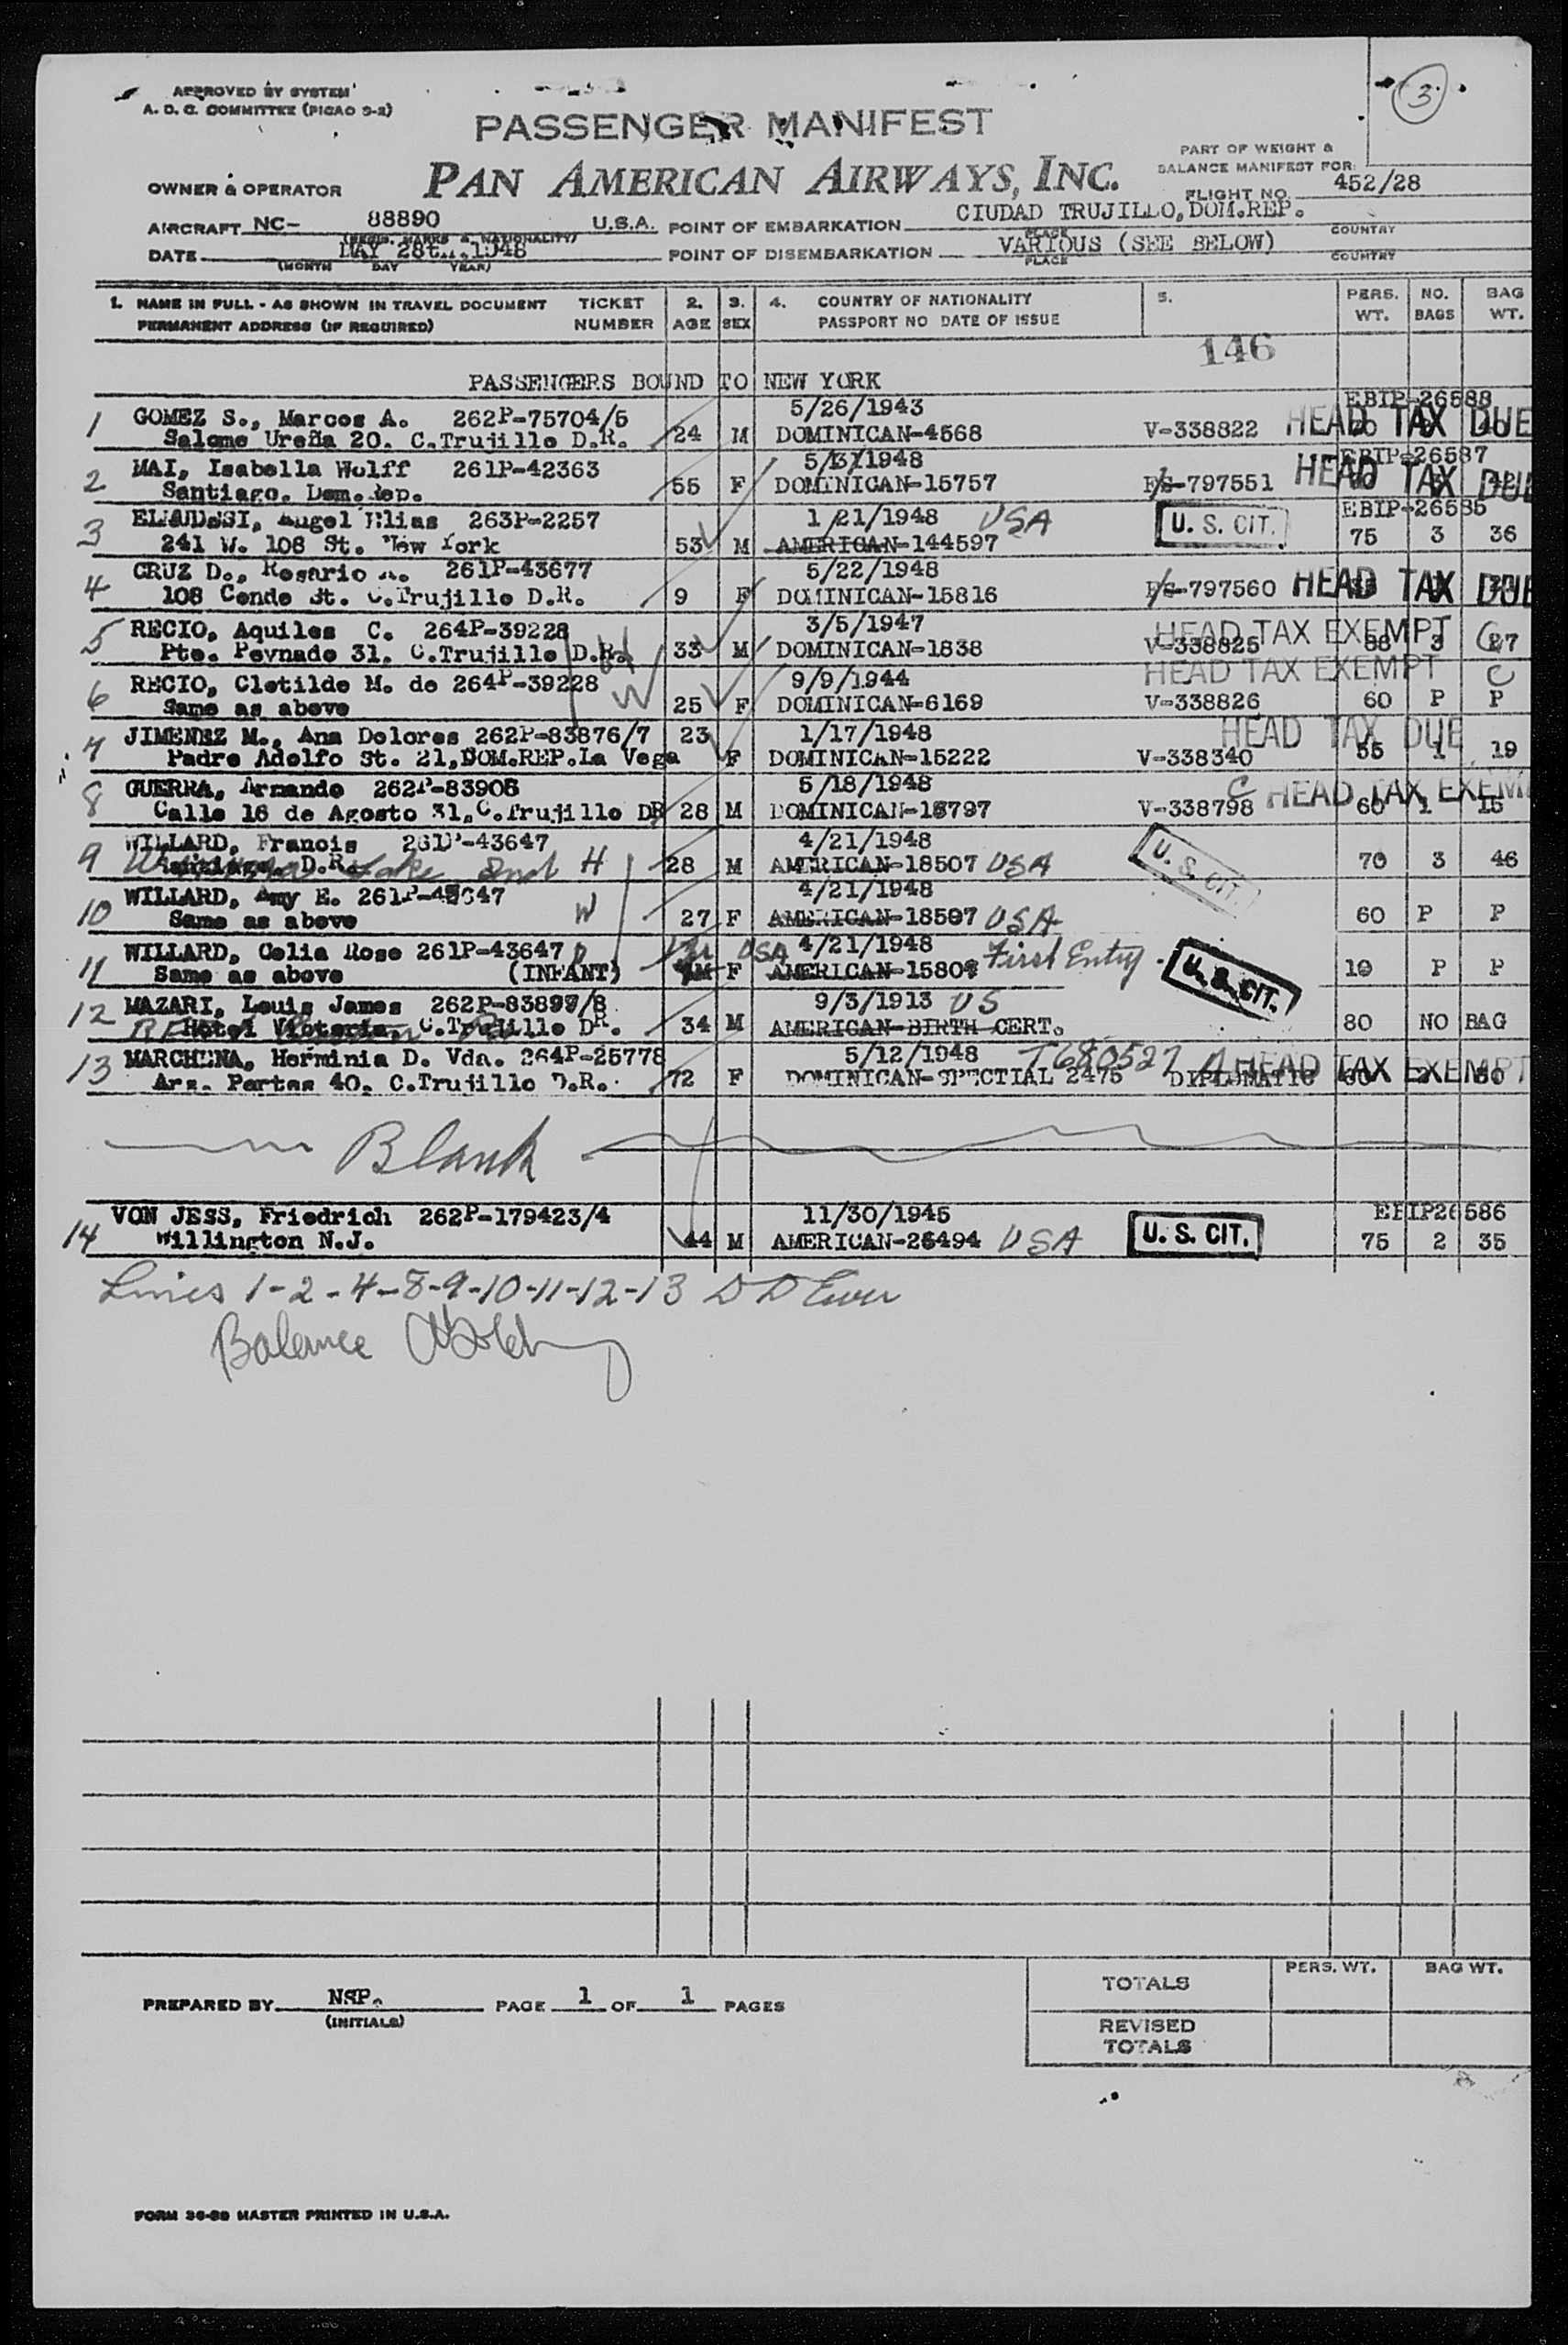 APPROVED BY SYSTEM
A. O. C. COMMITTEE (PICAO 9-2)
3
PASSENGER MANIFEST
PAN AMERICAN AIRWAYS, INC.
PART OF WEIGHT &
BALANCE MANIFEST FOR:
OWNER & OPERATOR
FLIGHT NO. 452/28
AIRCRAFT NC- 88890 U.S.A. POINT OF EMBARKATION CIUDAD TRUJILLO, DOM.REP.
(REGIS. MARKS & NATIONALITY) PLACE COUNTRY
DATE MAY 28th.,1948 POINT OF DISEMBARKATION VARIOUS (SEE BELOW)
(MONTH DAY YEAR) PLACE COUNTRY
1. NAME IN FULL - AS SHOWN IN TRAVEL DOCUMENT TICKET 2. 3. 4. COUNTRY OF NATIONALITY 5. PERS. NO. BAG
PERMANENT ADDRESS (IF REQUIRED) NUMBER AGE SEX PASSPORT NO DATE OF ISSUE WT. BAGS WT.
146
PASSENGERS BOUND TO NEW YORK
EBIP-26588
1 GOMEZ S., Marcos A. 262P-75704/5 5/26/1943
Salome Ureña 20. C.Trujillo D.R. 24 M DOMINICAN-4568 V-338822 HEAD TAX DUE
EBIP-26587
2 MAI, Isabella Wolff 261P-42363 5/31/1948
Santiago. Dom.Rep. 55 F DOMINICAN-15757 797551 HEAD TAX DUE
EBIP-26585
3 Angel Elias 263P-2257 1/21/1948 USA U. S. CIT.
241 W. 108 St. New York 53 M AMERICAN-144597 75 3 36
4 CRUZ D., Rosario A. 261P-43677 5/22/1948
108 Conde St. C.Trujillo D.R. 9 F DOMINICAN-15816 797560 HEAD TAX DUE
5 RECIO, Aquiles C. 264P-39228 3/5/1947 HEAD TAX EXEMPT C
Pte. Peynado 31. C.Trujillo D.R. H 33 M DOMINICAN-1838 V-338825 88 3 27
6 RECIO, Clotilde M. de 264P-39228 W 9/9/1944 HEAD TAX EXEMPT C
Same as above 25 F DOMINICAN-6169 V-338826 60 P P
7 JIMENEZ M., Ana Dolores 262P-83876/7 23 1/17/1948 HEAD TAX DUE
Padre Adolfo St. 21,DOM.REP.La Vega F DOMINICAN-15222 V-338340 55 1 19
8 GUERRA, Armando 262P-83906 5/18/1948 C HEAD TAX EXEM
Calle 16 de Agosto 31,C.Trujillo DR 28 M DOMINICAN-15797 V-338798 60 1 15
9 WILLARD, Francis 261P-43647 4/21/1948 U. S. CIT.
Santiago D.R. Lake Ind H 28 M AMERICAN-18507 USA 70 3 46
10 WILLARD, Amy E. 261P-43647 4/21/1948
Same as above W 27 F AMERICAN-18507 USA 60 P P
11 WILLARD, Celia Rose 261P-43647 D USA 4/21/1948 First Entry U. S. CIT.
Same as above (INFANT) F AMERICAN-15809 10 P P
12 MAZARI, Louis James 262P-83897/8 9/3/1913 US
Hotel Victoria, C.Trujillo DR. 34 M AMERICAN-BIRTH CERT. 80 NO BAG
13 MARCHENA, Herminia D. Vda. 264P-25778 5/12/1948 T680527 A HEAD TAX EXEMPT
Arz. Portes 40. C.Trujillo D.R. 72 F DOMINICAN-SPECTIAL 2475 DIPLOMATIC
Blank
EBIP26586
VON JESS, Friedrich 262P-179423/4 11/30/1945
14 Willington N.J. 44 M AMERICAN-26494 USA U. S. CIT. 75 2 35
Lines 1-2-4-8-9-10-11-12-13
Balance
TOTALS PERS. WT. BAG WT.
PREPARED BY NSP. PAGE 1 OF 1 PAGES
(INITIALS)
REVISED
TOTALS
FORM 36-89 MASTER PRINTED IN U.S.A.